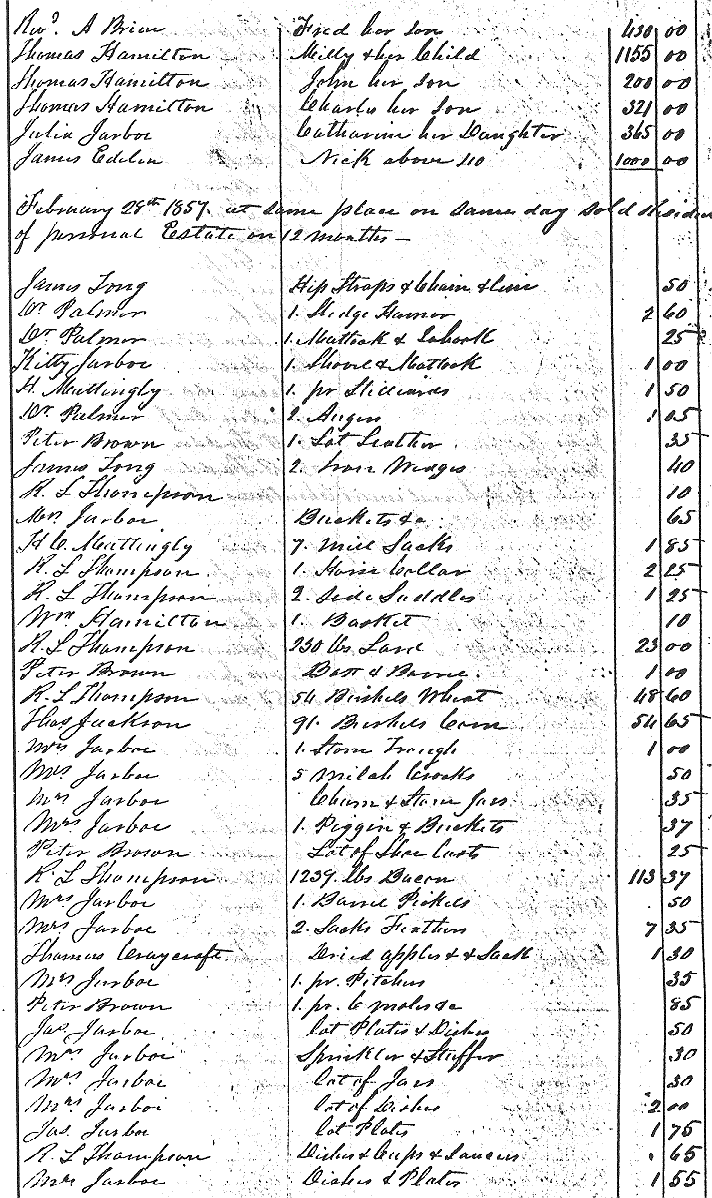 Revd. A Brien Fred her son 430 00
Thomas Hamilton Milly & her Child 1155 00
Thomas Hamilton John her son 200 00
Thomas Hamilton Charles her Son 321 00
Julia Jarboe Catharine her Daughter 365 00
James Edelen Nick above 40 1000 00
February 28th 1857. at same place on same day sold
of personal Estate on 12 months —
James Long Hip Straps & Chain & 50
Dr Palmer 1. Sledge Hamer 2 60
Dr Palmer 1. Mattock & 25
Kitty Jarboe 1. Shovel & Mattock 1 00
H. Mattingly 1. pr Stilliards 1 50
Dr Palmer 2. Augers 1 05
Peter Brown 1. Lot Leather 35
James Long 2. Iron Wedges 40
R. L Thompson 10
Mrs Jarboe Buckets &c 65
H C. Mattingly 7. Mill Sacks 1 85
R. L Thompson 1. Horse Collar 2 25
R. L Thompson 2. Side Saddles 1 25
Wm Hamilton 1. Basket 10
R. L Thompson 230 lbs. Lard 23 00
Peter Brown 1 00
R. L Thompson 54 Bushels Wheat 48 60
Thos Jackson 91. Bushels Corn 54 65
Mrs Jarboe 1. Stone Trough 1 00
Mrs Jarboe 5 Milch Crocks 50
Mrs Jarboe Churn & Stone Jars 35
Mrs Jarboe 1. Piggin & Buckets 37
Peter Brown Lot of Shoe Lasts 25
R. L Thompson 1239. lbs Bacon 113 37
Mrs Jarboe 1. Barrel Pickels 50
Mrs Jarboe 2. Sacks Feathers 7 35
Thomas Craycroft Dried apples & Sack 1 30
Mrs Jarboe 1. pr. Pitchers 35
Peter Brown 1. pr. C molds &c 85
Jas. Jarboe lot Plates & Dishes 50
Mrs Jarboe Sprinkler & Stuffer 30
Mrs Jarboe lot of Jars 30
Mrs Jarboe lot of Dishes 2 00
Jas Jarboe lot Plates 1 75
R. L Thompson Dishes & Cups & Saucers 65
Mrs Jarboe Dishes & Plates 1 55